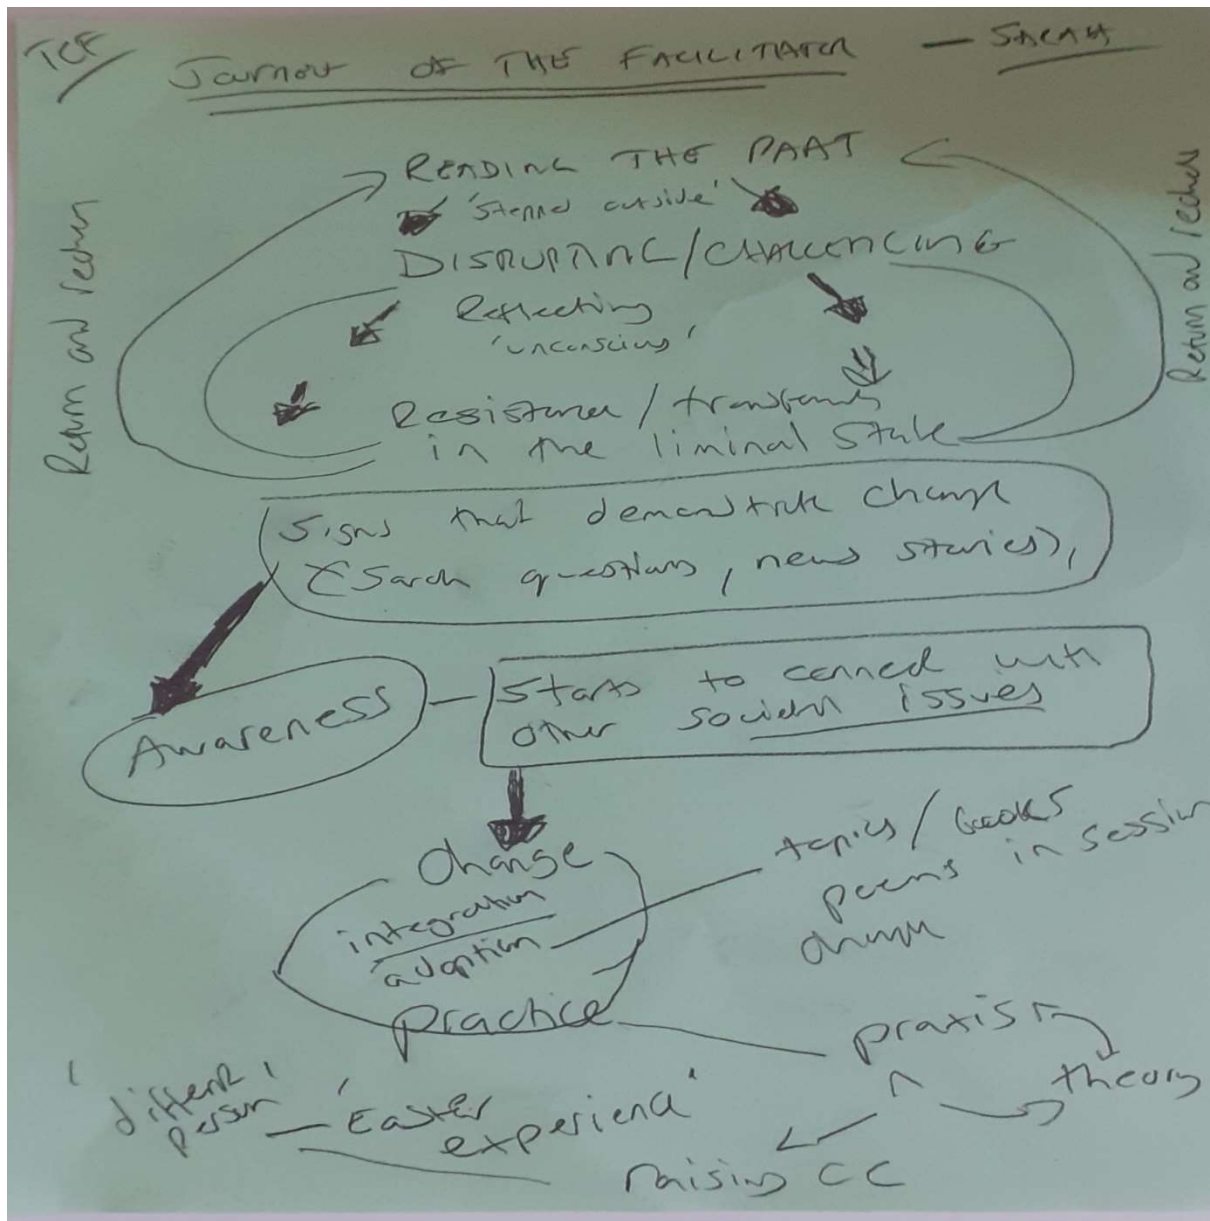 TCF
Journey OF THE FACILITATOR — SARAH
READING THE PAAT
'Stepped outside'
DISRUPTING/CHALLENGING
Reflecting
'unconscious'
Resistance/transform
in the liminal state
Return and reckon
Return and reckon
Signs that demonstrate change
(Sarah questions, new stories),
Awareness
Starts to connect with
other societal issues
Change
integration
adoption
practice
topics/books
poems in session
change
praxis
theory
'different
person'
'Easter
experience'
raising CC